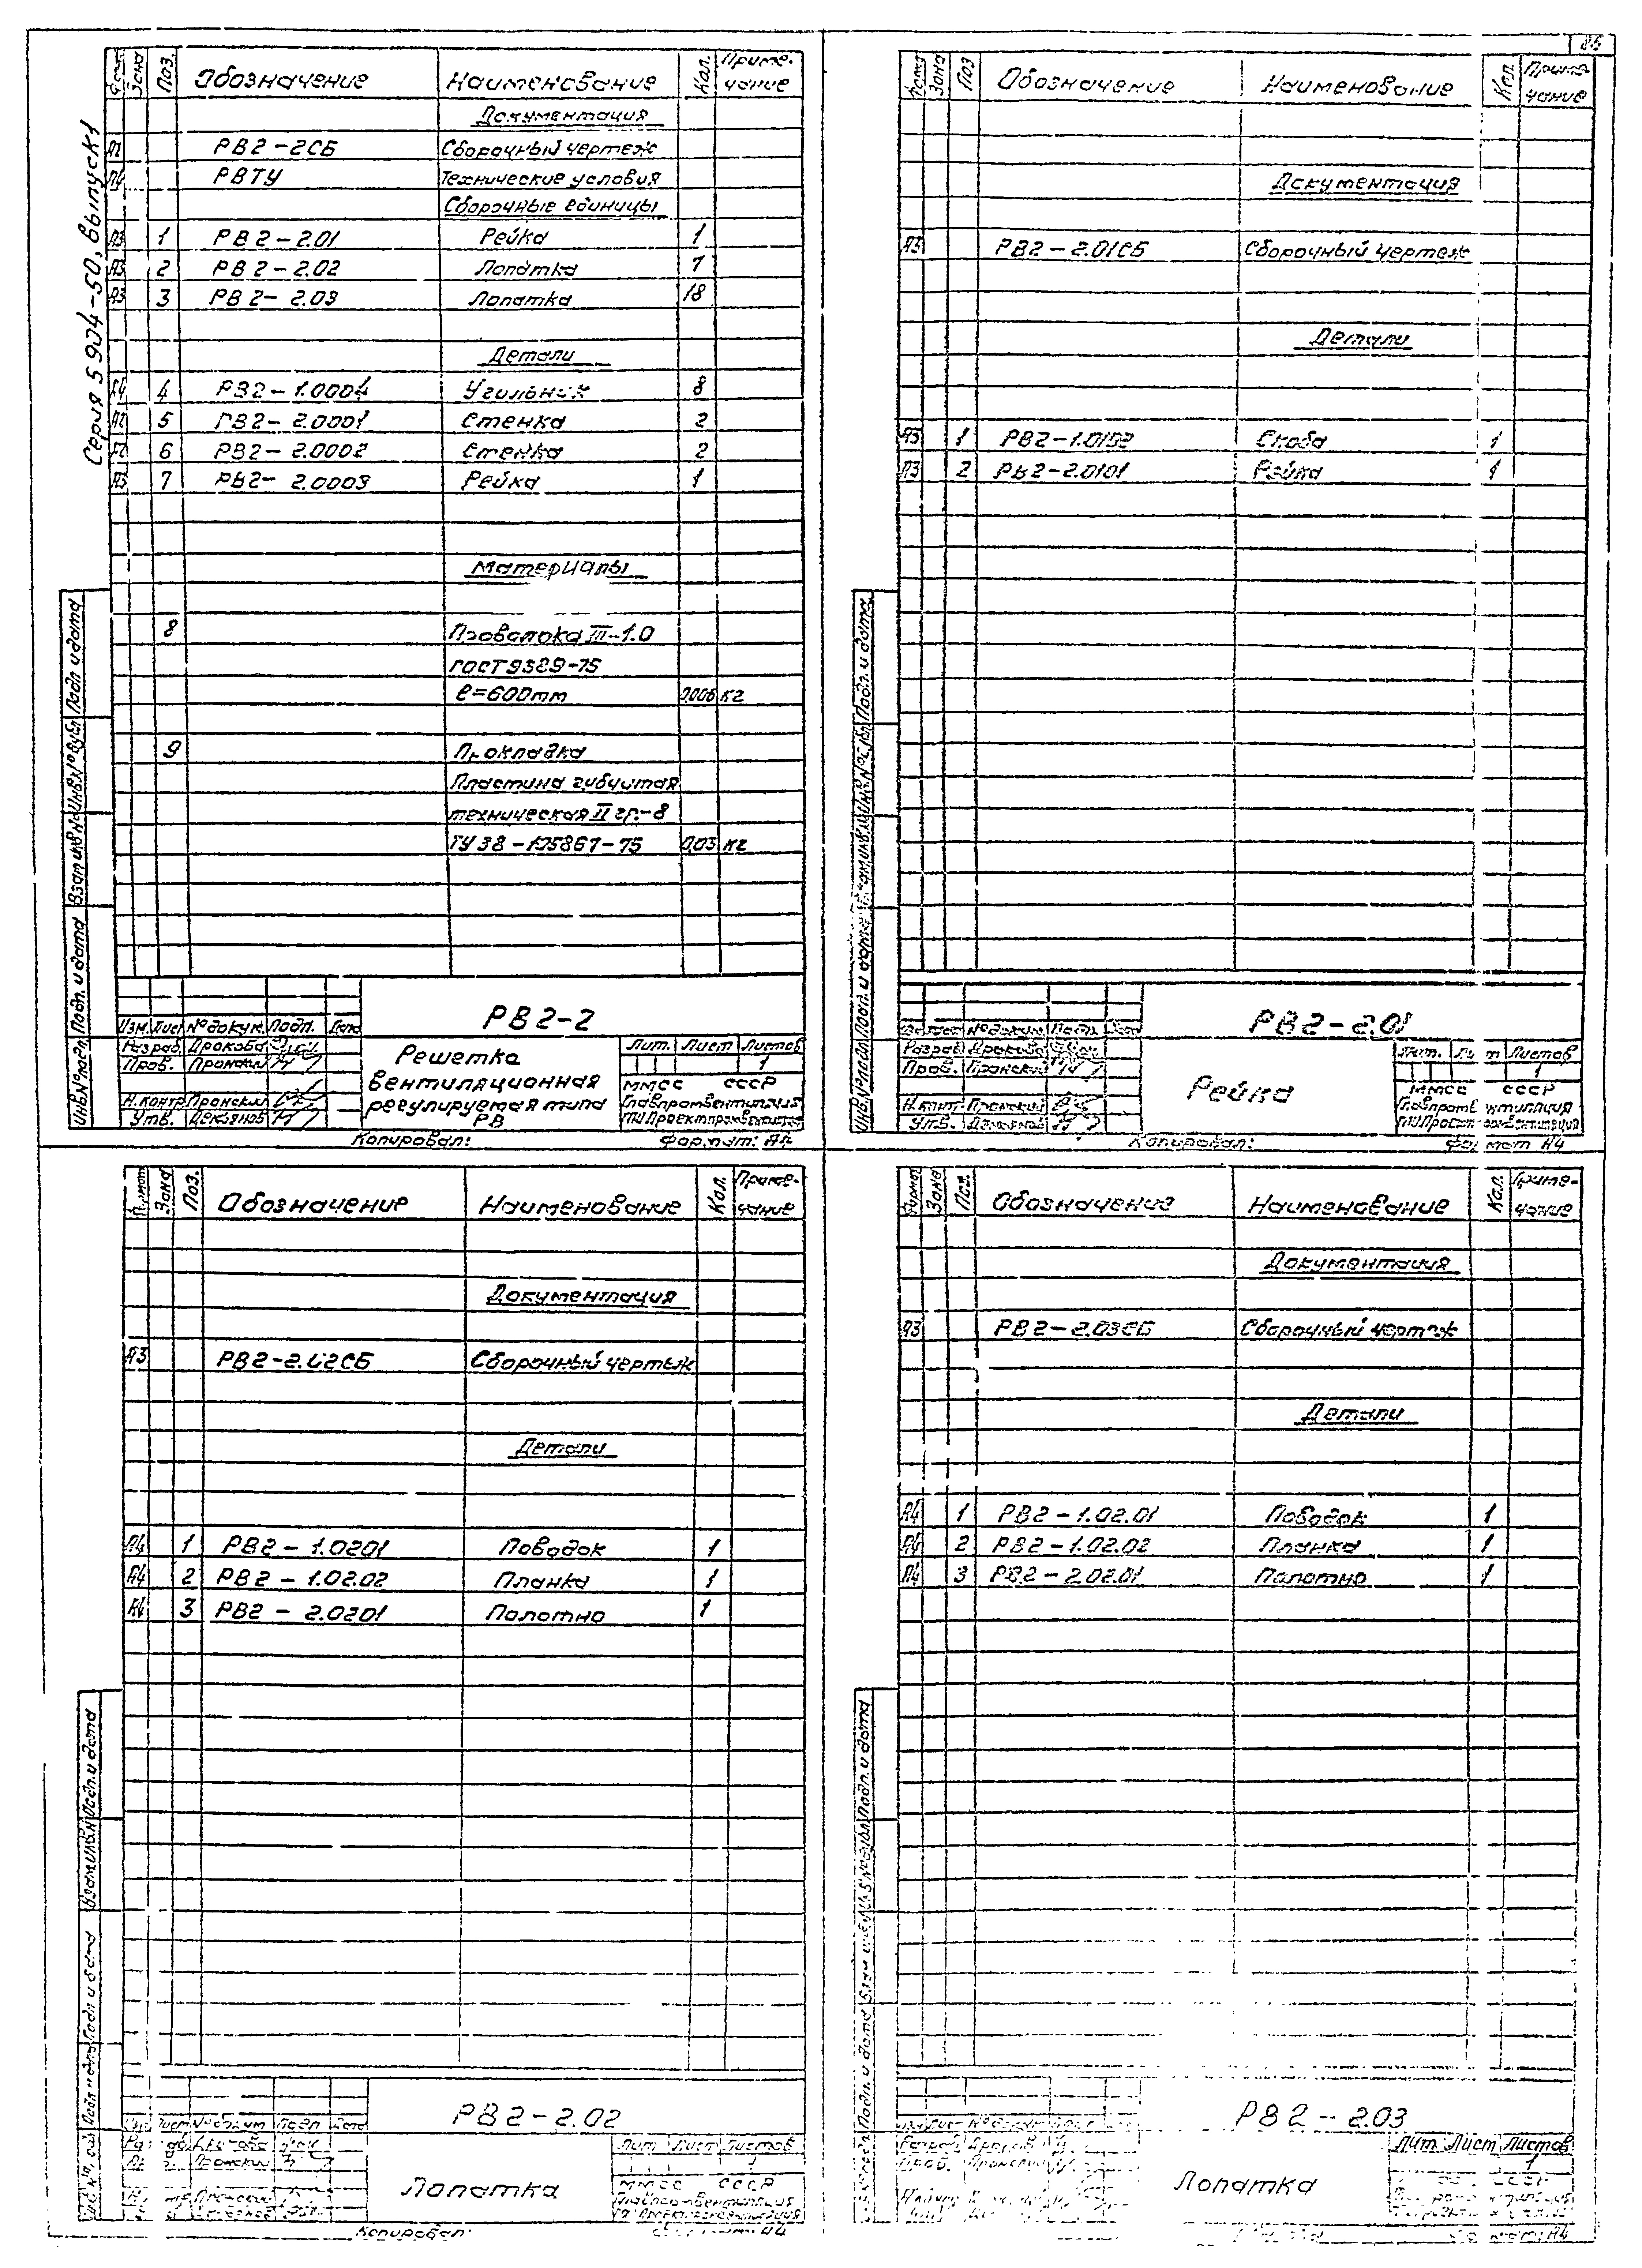 Серия 5 904-50, выпуск 1
Зона Поз. Обозначение Наименование Кол. Примечание
Документация
А2 РВ2-2СБ Сборочный чертеж
А4 РВТУ Технические условия
Сборочные единицы
А3 1 РВ2-2.01 Рейка 1
А3 2 РВ2-2.02 Лопатка 7
А3 3 РВ2-2.03 Лопатка 18
Детали
А4 4 РВ2-1.0004 Угольник 8
А2 5 РВ2-2.0001 Стенка 2
А2 6 РВ2-2.0002 Стенка 2
А3 7 РВ2-2.0003 Рейка 1
Материалы
8 Проволока III-1.0
ГОСТ 9389-75
ℓ=600mm 0,006 кг
9 Прокладка
Пластина губчатая
техническая II гр.-8
ТУ38-105867-75 0,03 кг
Инв.№подл. Подп. и дата Взам инв № Инв.№дубл Подп. и дата
Изм. Лист №докум. Подп. Дата
Разраб. Дрокова
Пров. Пронский
Н.контр. Пронский
Утв.
РВ2-2
Решетка
вентиляционная
регулируемая типа
РВ
Лит. Лист Листов
1
ММСС СССР
Главпромвентиляция
Копировал: Формат: А4
86
Зона Поз Обозначение Наименование Кол. Примечание
Документация
А3 РВ2-2.01СБ Сборочный чертеж
Детали
А3 1 Скоба 1
А3 2 РВ2-2.0101 Рейка 1
Подп. и дата
№докум. Подп.
Разраб. Дрокова
Пров. Пронский
Н.контр. Пронский
Утв.
РВ2-2.01
Рейка
Лит. Лист Листов
1
ММСС СССР
Главпромвентиляция
Копировал: Формат А4
Формат Зона Поз. Обозначение Наименование Кол. Примечание
Документация
А3 РВ2-2.02СБ Сборочный чертеж
Детали
А4 1 РВ2-1.0201 Поводок 1
А4 2 РВ2-1.02.02 Планка 1
А4 3 РВ2-2.0201 Полотно 1
Подп. и дата
РВ2-2.02
Лопатка
Лит Лист Листов
ММСС СССР
Главпромвентиляция
Копировал: Формат: А4
Формат Зона Поз. Обозначение Наименование Кол. Примечание
Документация
А3 РВ2-2.03СБ Сборочный чертеж
Детали
А4 1 РВ2-1.02.01 Поводок 1
А4 2 РВ2-1.02.02 Планка 1
А4 3 РВ2-2.02.01 Полотно 1
Подп. и дата
РВ2-2.03
Лопатка
Лит Лист Листов
1